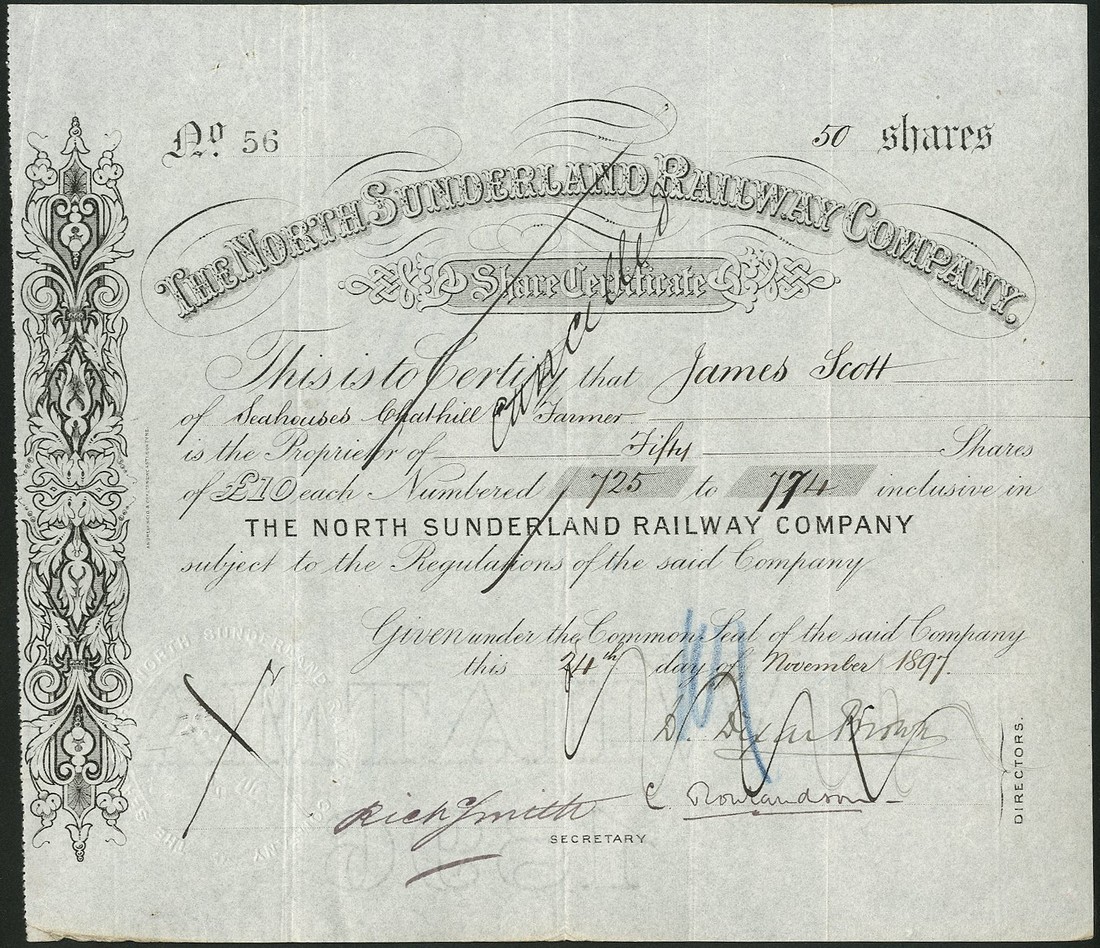 No. 56
50 shares
THE NORTH SUNDERLAND RAILWAY COMPANY.
Share Certificate
Cancelled
This is to Certify that James Scott
of Seahouses Chathill Farmer
is the Proprietor of Fifty Shares
of £10 each Numbered 725 to 774 inclusive in
THE NORTH SUNDERLAND RAILWAY COMPANY
subject to the Regulations of the said Company
Given under the Common Seal of the said Company
this 24th day of November 1897.
D. Dixon Brown
C. Rowlandson
Rich Smith
SECRETARY
DIRECTORS.
NORTH SUNDERLAND